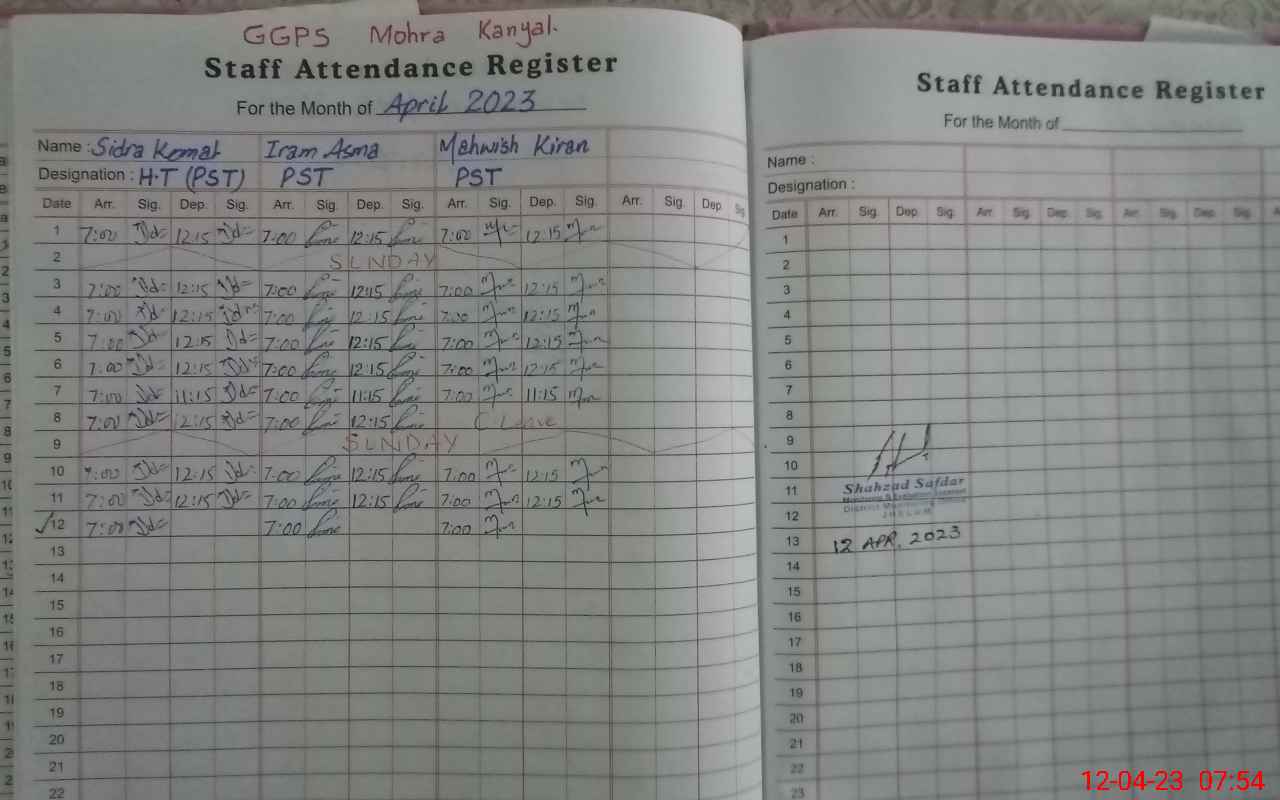 GGPS Mohra Kanyal.
Staff Attendance Register
For the Month of April 2023
Name : Sidra Komal Iram Asma Mahwish Kiran
Designation : H.T (PST) PST PST
Date Arr. Sig. Dep. Sig. Arr. Sig. Dep. Sig. Arr. Sig. Dep. Sig. Arr. Sig. Dep. Sig.
1 7:00 12:15 7:00 12:15 7:00 12:15
2 SUNDAY
3 7:00 12:15 7:00 12:15 7:00 12:15
4 7:00 12:15 7:00 12:15 7:00 12:15
5 7:00 12:15 7:00 12:15 7:00 12:15
6 7:00 12:15 7:00 12:15 7:00 12:15
7 7:00 11:15 7:00 11:15 7:00 11:15
8 7:00 12:15 7:00 12:15 C Leave
9 SUNDAY
10 7:00 12:15 7:00 12:15 7:00 12:15
11 7:00 12:15 7:00 12:15 7:00 12:15
12 7:00 7:00 7:00
13
14
15
16
17
18
19
20
21
22
Staff Attendance Register
For the Month of
Name :
Designation :
Date Arr. Sig. Dep. Sig. Arr. Sig. Dep. Sig. Arr. Sig. Dep. Sig.
1
2
3
4
5
6
7
8
9
10
11
12
13
14
15
16
17
18
19
20
21
22
23
Shahzad Safdar
Monitoring & Evaluation Assistant
District Monitoring
JHELUM
12 APR, 2023
12-04-23 07:54